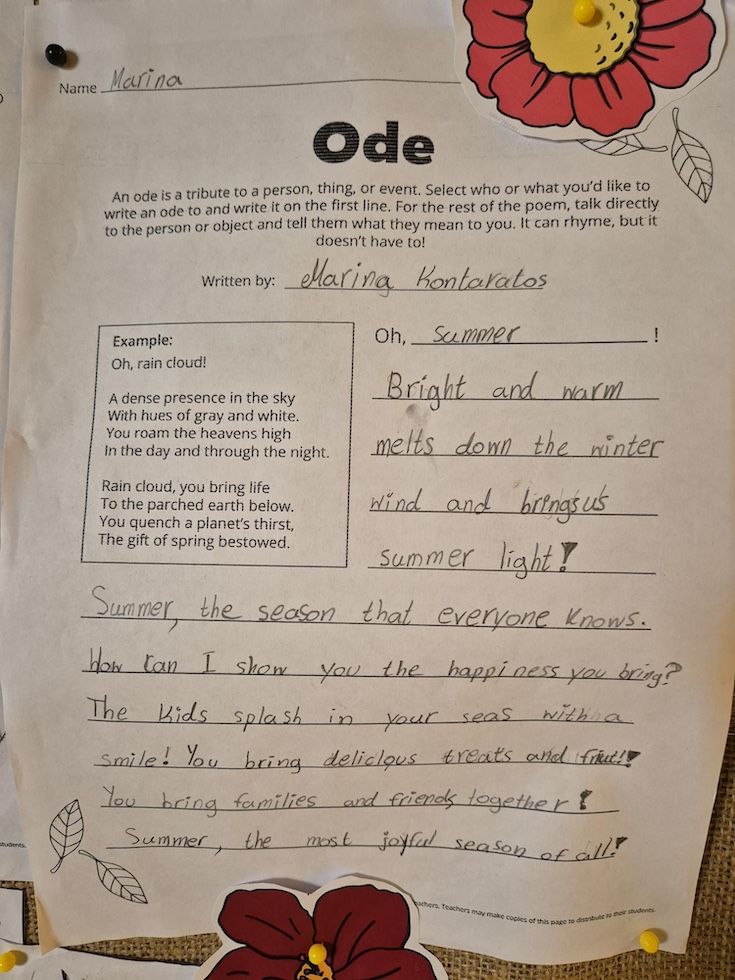 Name Marina
Ode
An ode is a tribute to a person, thing, or event. Select who or what you'd like to
write an ode to and write it on the first line. For the rest of the poem, talk directly
to the person or object and tell them what they mean to you. It can rhyme, but it
doesn't have to!
Written by: Marina Kontaratos
Example:
Oh, rain cloud!
A dense presence in the sky
With hues of gray and white.
You roam the heavens high
In the day and through the night.
Rain cloud, you bring life
To the parched earth below.
You quench a planet's thirst,
The gift of spring bestowed.
Oh, summer !
Bright and warm
melts down the winter
wind and brings us
summer light!
Summer, the season that everyone knows.
How can I show you the happiness you bring?
The kids splash in your seas with a
smile! You bring delicious treats and friut!!
You bring families and friends together!
Summer, the most joyful season of all!
students.
Teachers may make copies of this page to distribute to their students.